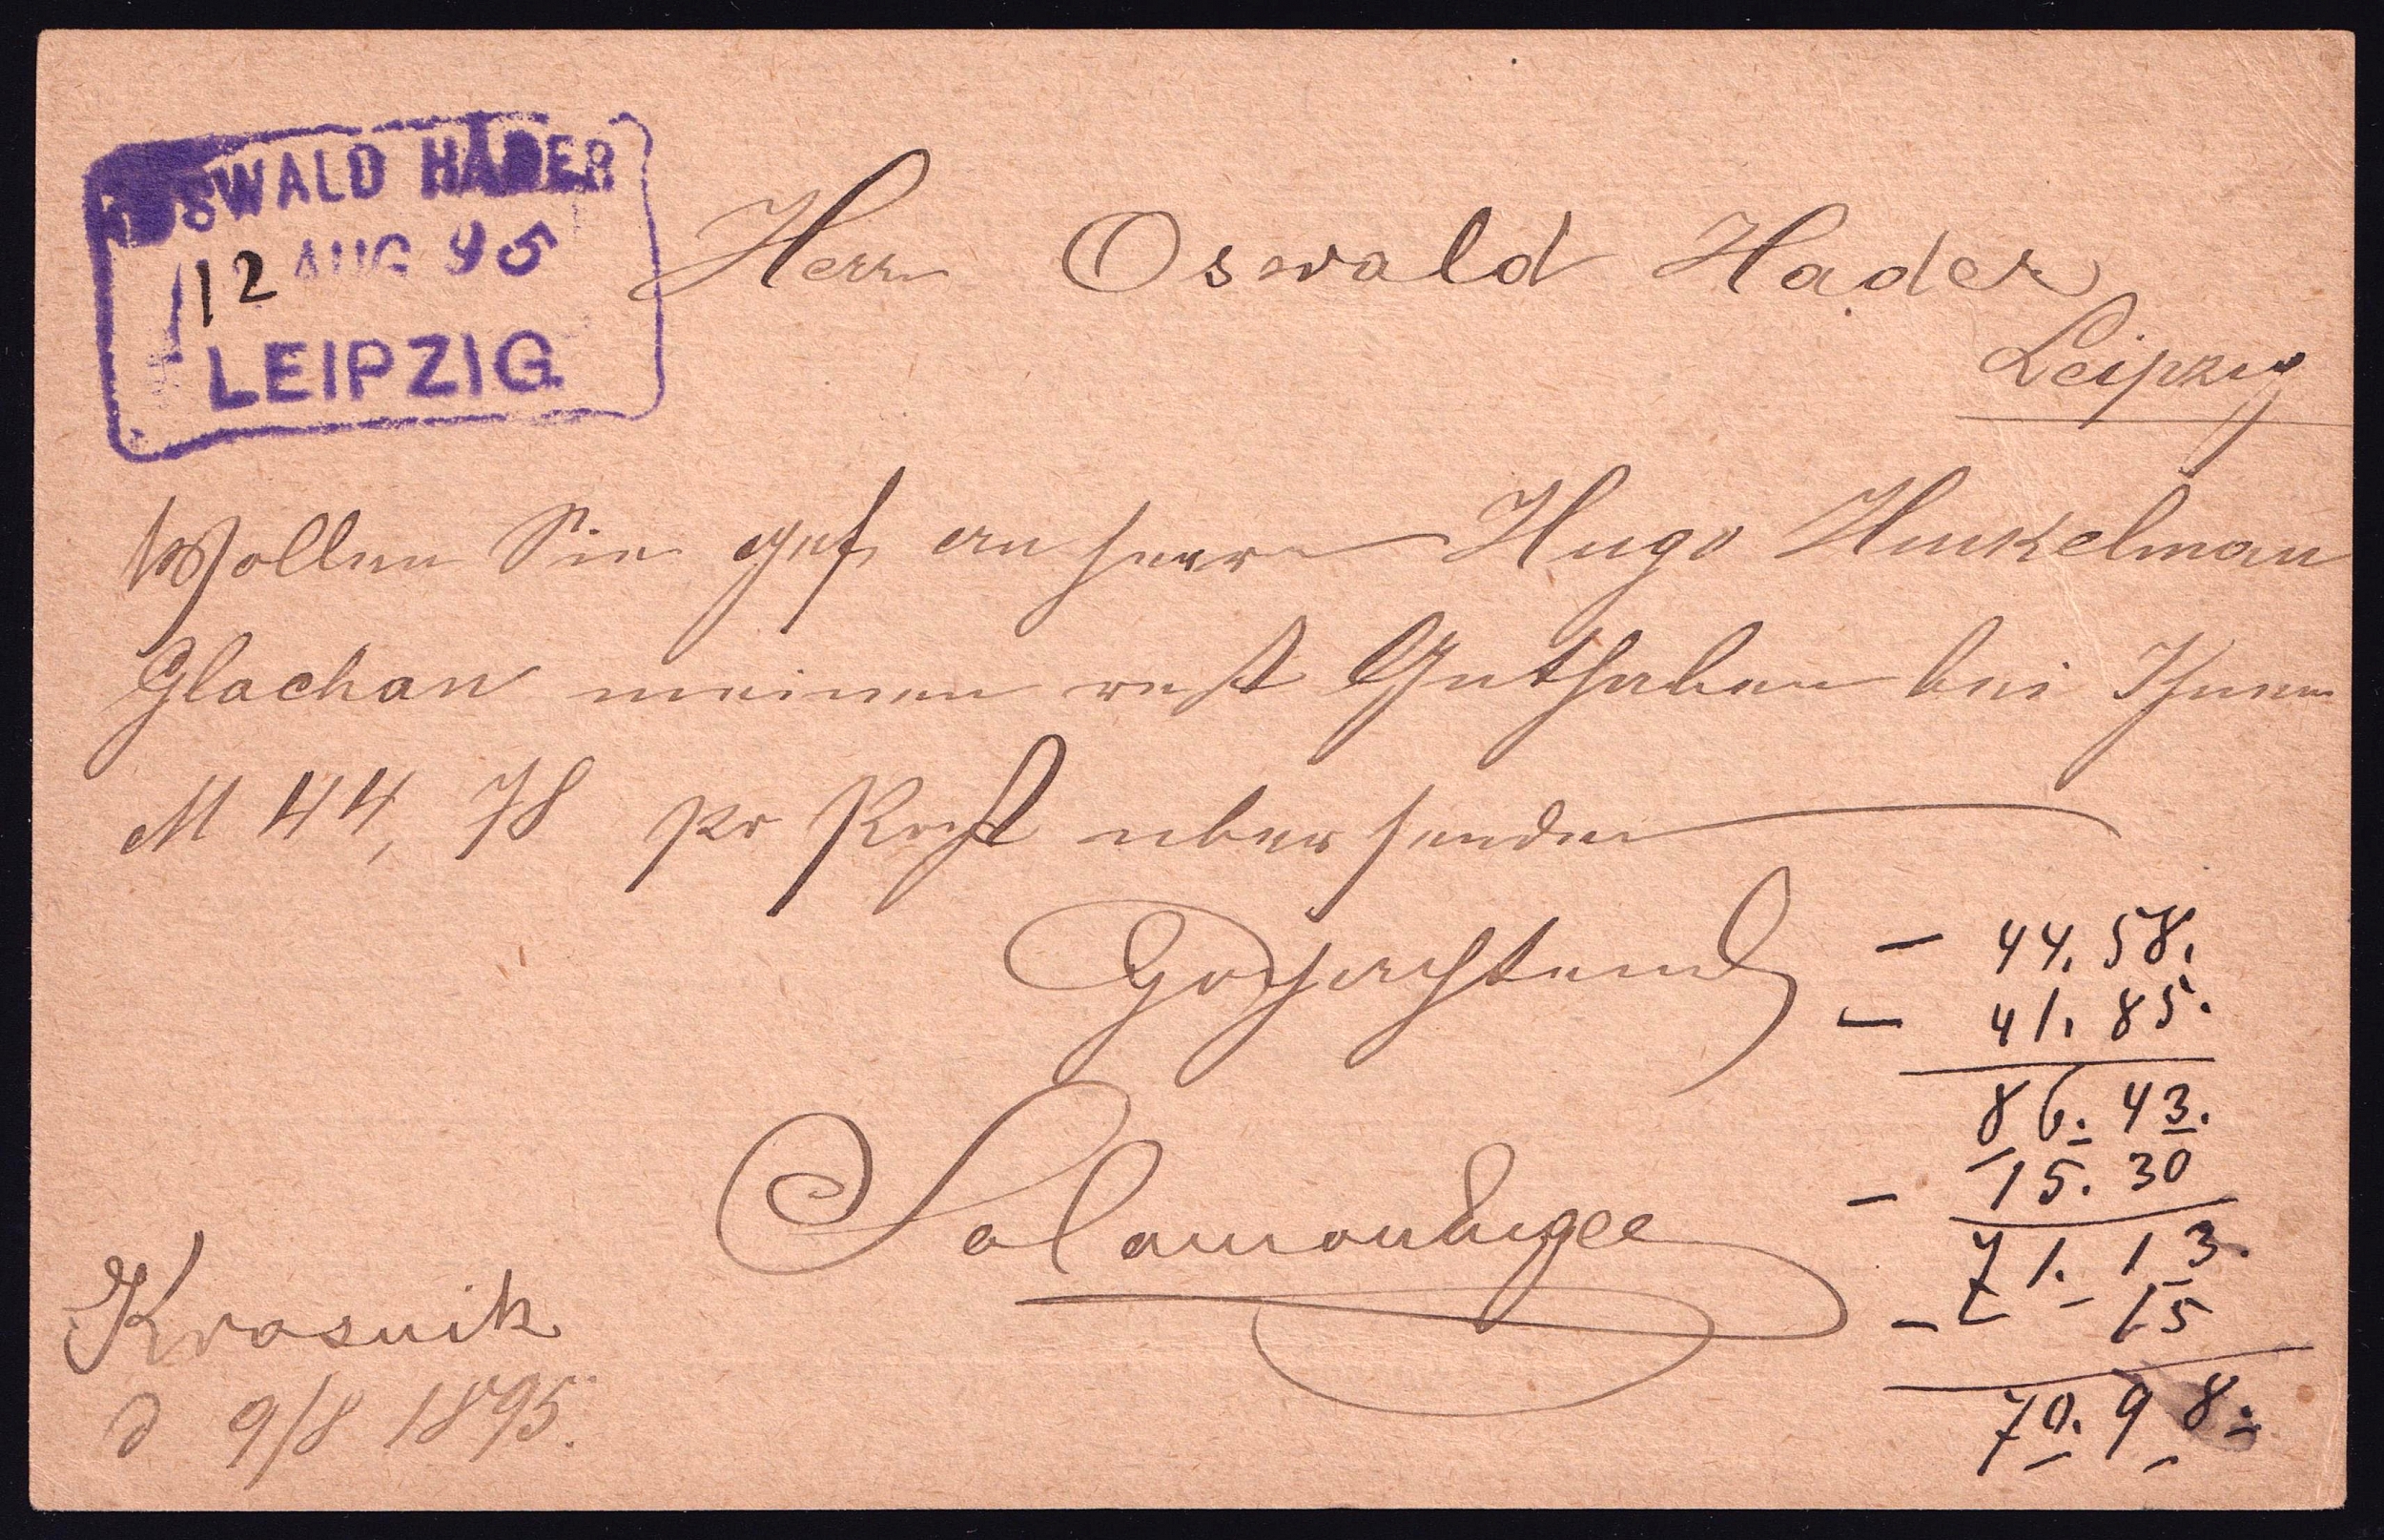 OSWALD HADER
12 AUG 95
LEIPZIG
Herr Oswald Hader
Leipzig
Wollen Sie gef an Herrn Hugo
Glachau meinen rest Guthaben bei Ihnen
M 44,78 pr Post übersenden
Hochachtend
Krasnik
d 9/8 1895.
— 44.58.
— 41.85.
86.43.
— 15.30
71.13.
— 15
70.98.